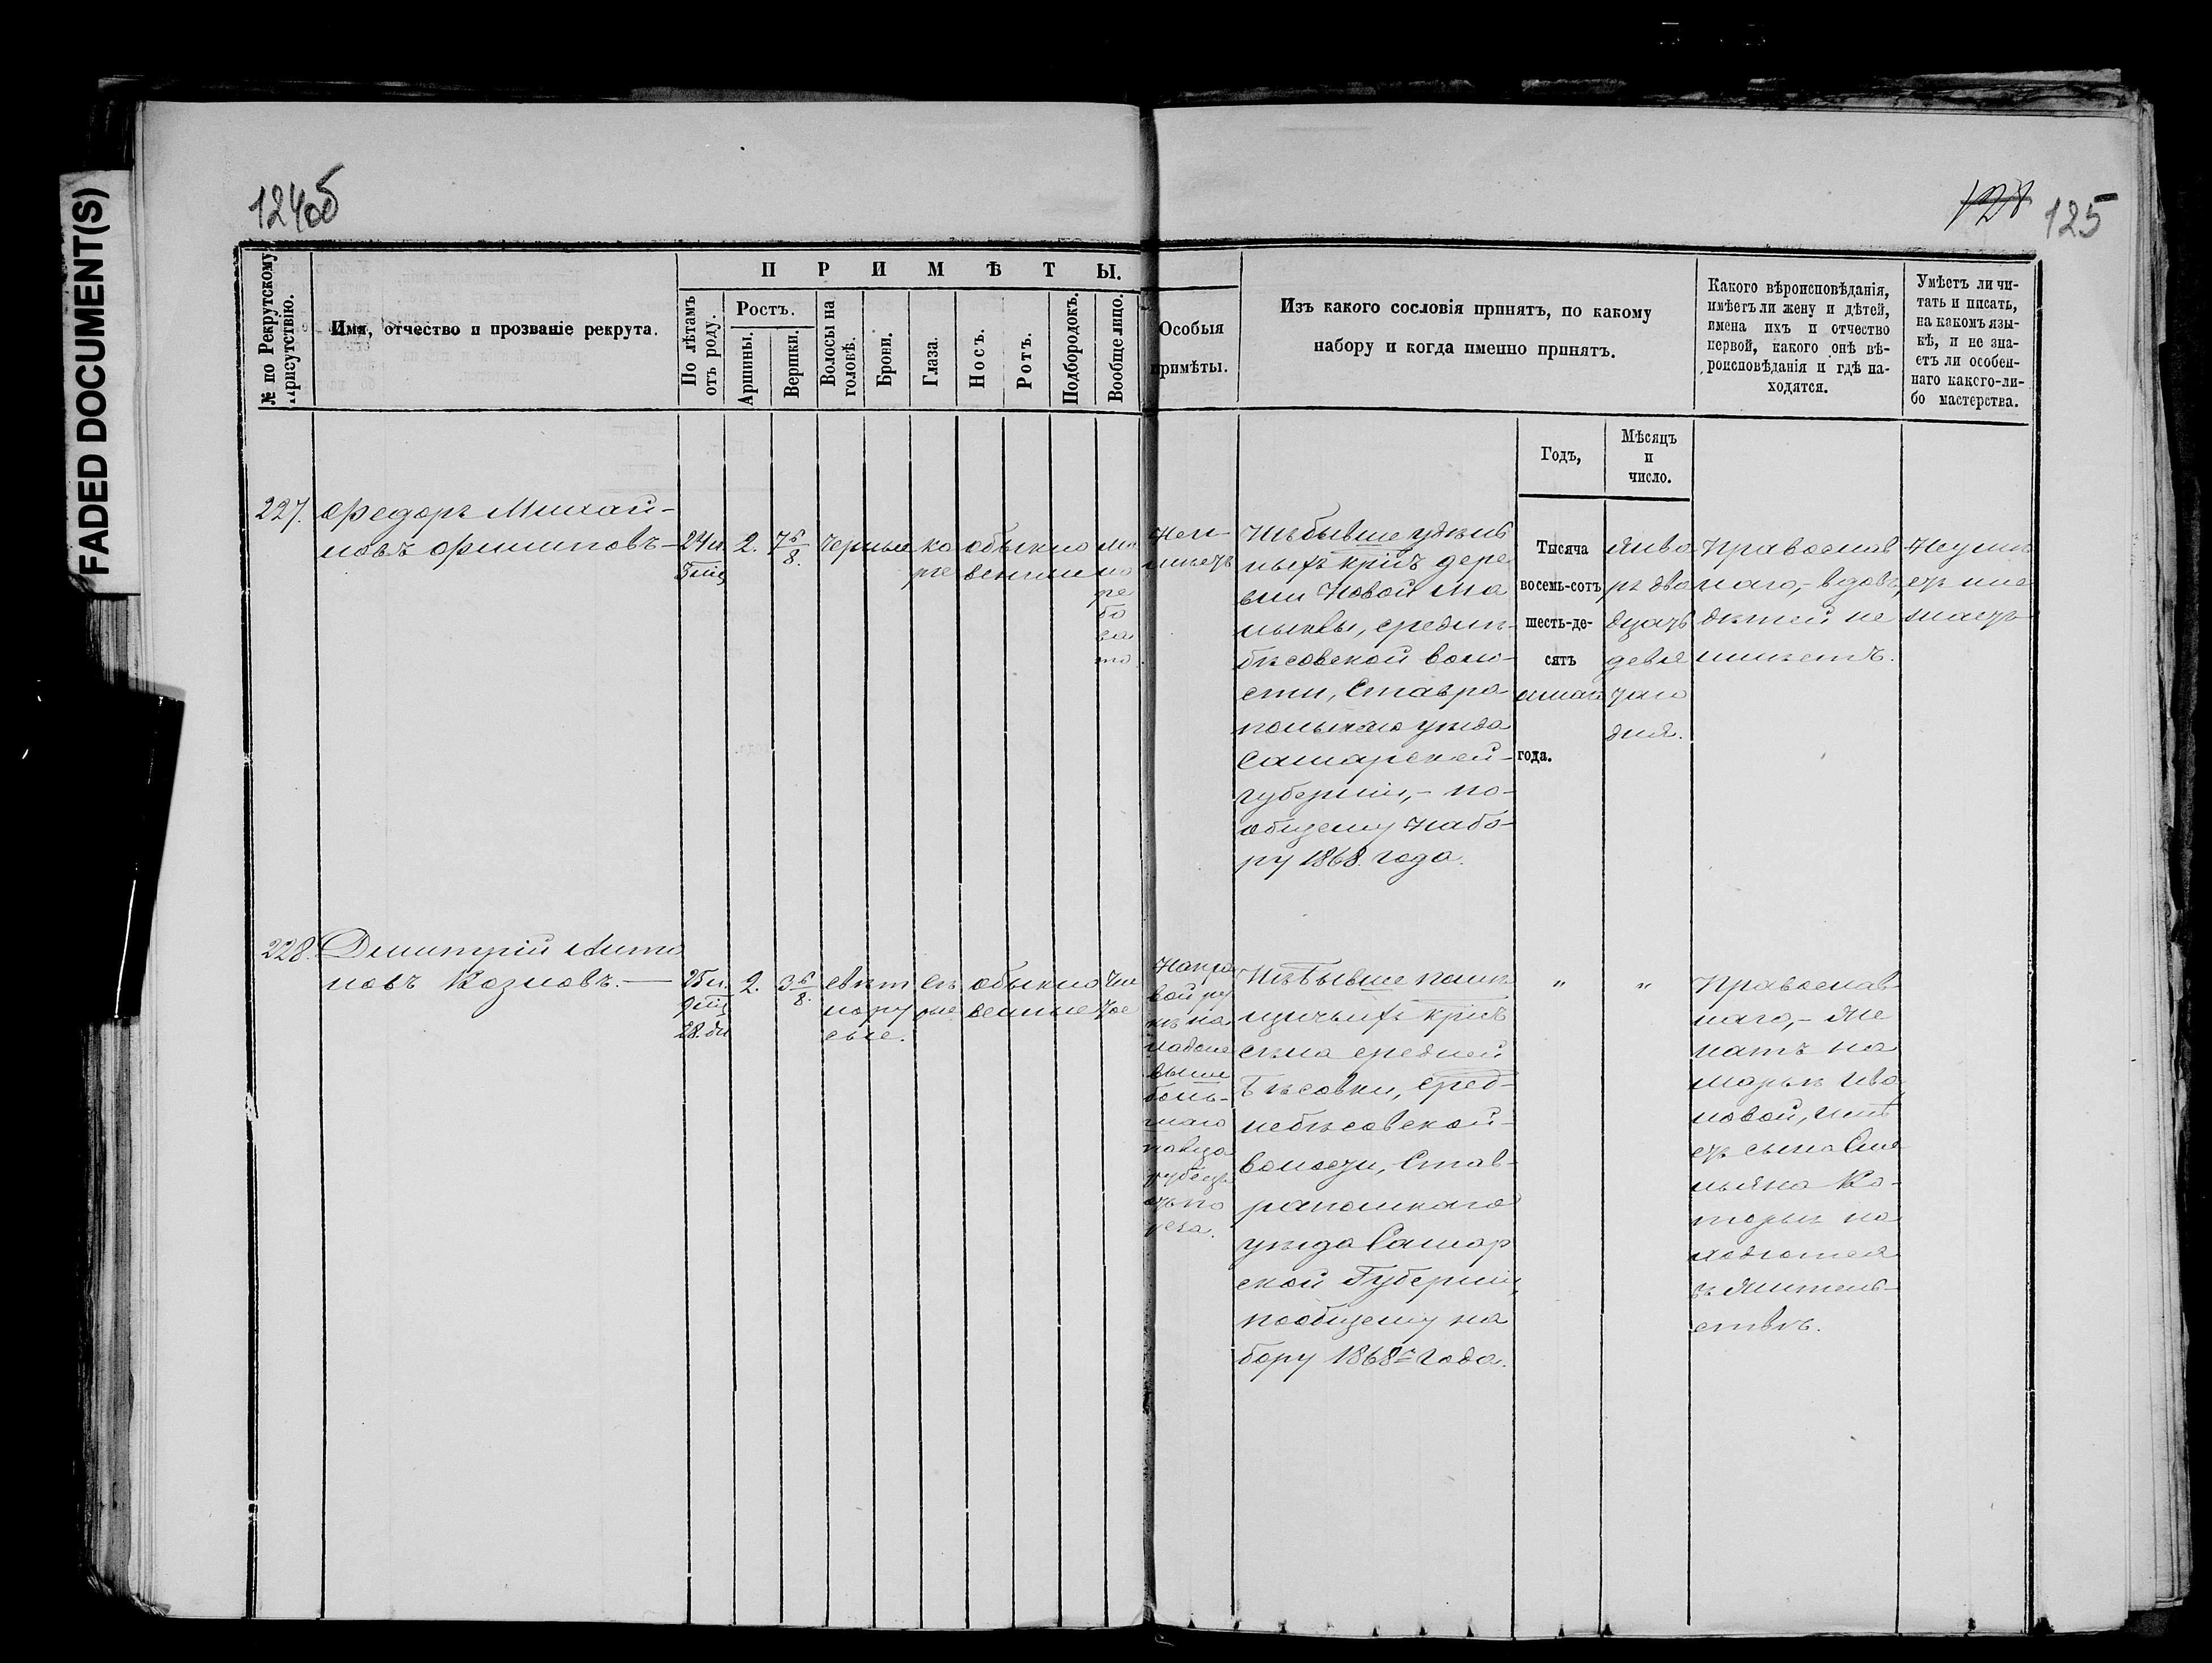 FADED DOCUMENT(S)
124об
128 125
№ по Рекрутскому Присутствію.
Имя, отчество и прозваніе рекрута.
ПРИМѢТЫ.
По лѣтамъ отъ роду.
Ростъ.
Аршины.
Вершки.
Волосы на головѣ.
Брови.
Глаза.
Носъ.
Ротъ.
Подбородокъ.
Вообще лицо.
Особыя
примѣты.
Изъ какого сословія принятъ, по какому
набору и когда именно принятъ.
Годъ,
Мѣсяцъ
и
число.
Какого вѣроисповѣданія,
имѣетъ ли жену и дѣтей,
имена ихъ и отчество
первой, какого онѣ вѣ-
роисповѣданія и гдѣ на-
ходятся.
Умѣетъ ли чи-
тать и писать,
на какомъ язы-
кѣ, и не зна-
етъ ли особен-
наго какого-ли-
бо мастерства.
227.
Федоръ Михай-
ловъ Филиповъ
24 л.
5 мѣц
2.
7 6/8.
Черные
ка
ріе
обыкно
венные
ря
бо
ва
то.
Неи
мѣетъ
Изъ бывше удѣль
ныхъ крѣ дере
вни Новой Ма
лыклы, средне-
бѣсовской воло-
сти, Ставро
польскаго уѣзда
Самарской
губерніи, - по-
общему набо-
ру 1868 года.
Тысяча
восемь-сотъ
шесть-де-
сятъ
осьмаго
года.
Янва
ря два
дцать
девя
таго
дня.
Православ
наго, - вдовъ,
дѣтей не
имѣетъ.
Неумѣ
етъ и не
знаетъ
228.
Димитрій Анто
новъ Козловъ.
25 л.
9 мѣц
28 дн
2.
3 6/8.
свѣт
лору
сые.
сѣ
рые
обыкно
венные
чис
тое
На пра
вой ру
кѣ на
ладоне
выше
боль-
шаго
пальца
рубецъ
отъ по
реза.
Изъ бывше помѣ
щичьихъ крѣ
села средней
Бѣсовки, сред-
небѣсовской
волости, Став-
ропольскаго
уѣзда Самар
ской Губерніи,
пообщему на
бору 1868 года.
"
"
Православ
наго, - Же
натъ на
Марьѣ Ива
новой, имѣ
етъ сына
Ко-
торые на
ходются
въ жител-
ствѣ.